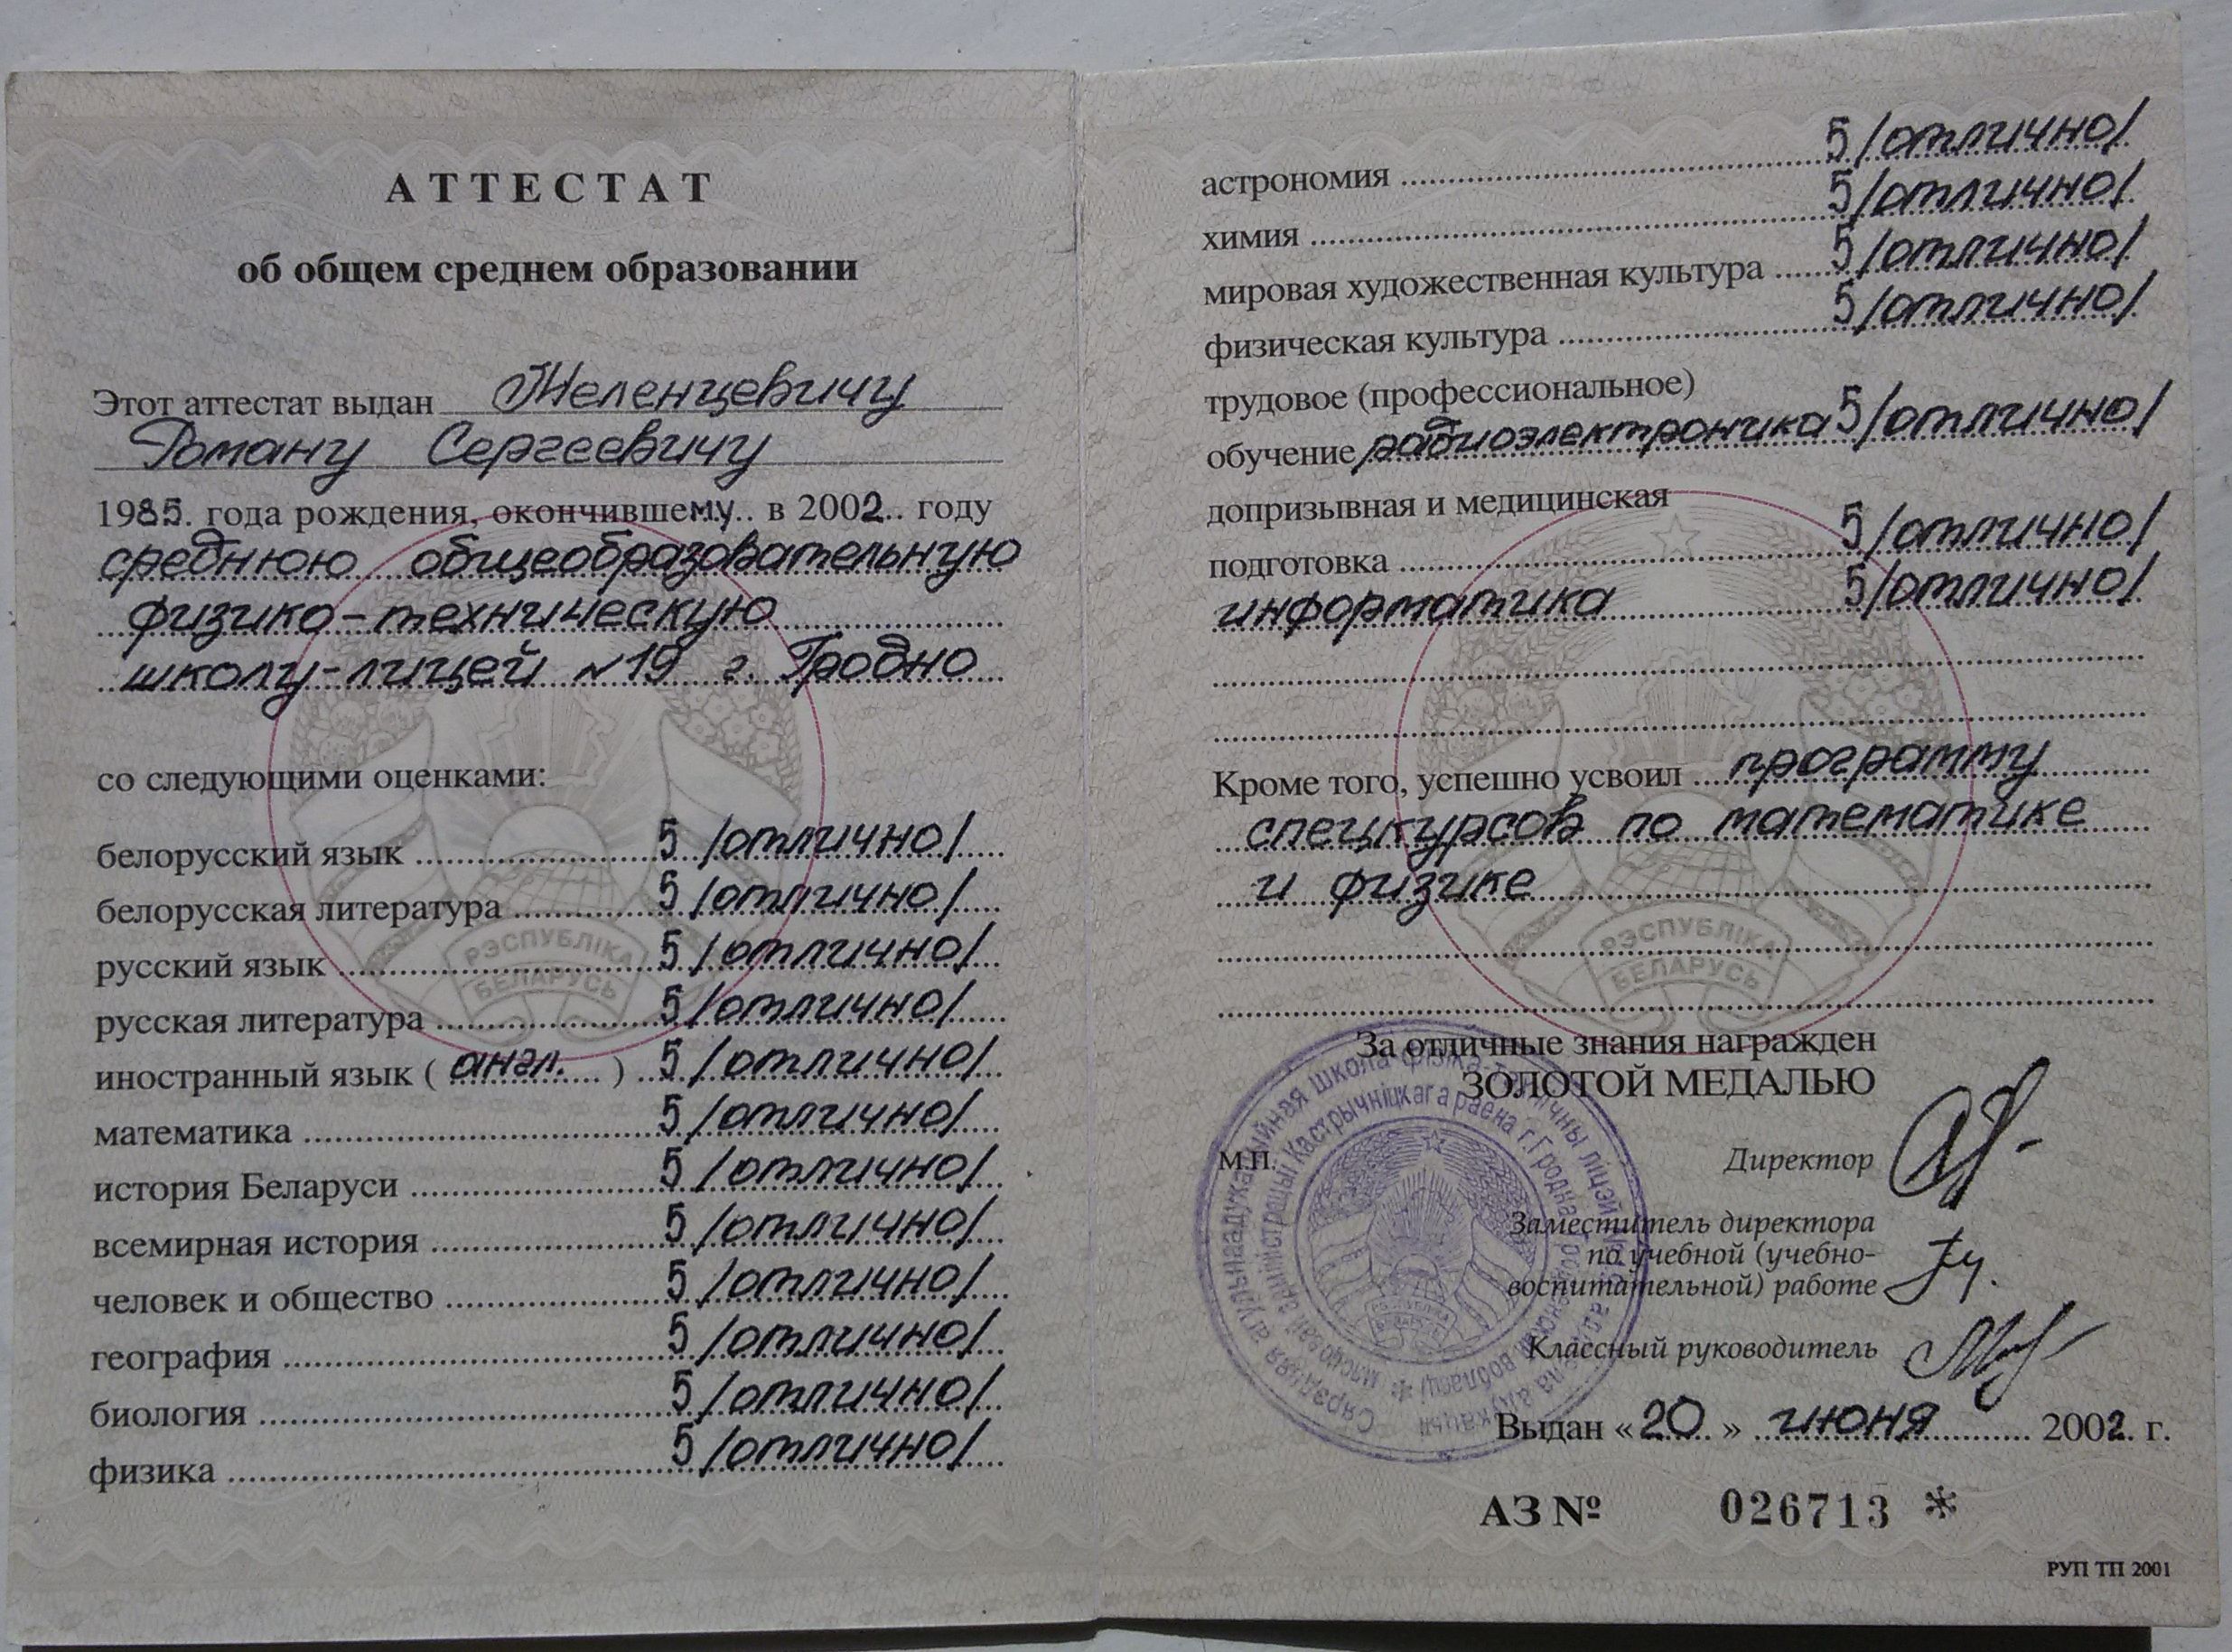 АТТЕСТАТ
об общем среднем образовании
Этот аттестат выдан Желенцевичу
Роману Сергеевичу
1985. года рождения, окончившему.. в 2002.. году
среднюю общеобразовательную
физико-техническую
школу-лицей №19 г. Гродно
со следующими оценками:
белорусский язык 5 /отлично/
белорусская литература 5 /отлично/
русский язык 5 /отлично/
русская литература 5 /отлично/
иностранный язык ( англ. ) 5 /отлично/
математика 5 /отлично/
история Беларуси 5 /отлично/
всемирная история 5 /отлично/
человек и общество 5 /отлично/
география 5 /отлично/
биология 5 /отлично/
физика 5 /отлично/
РЭСПУБЛІКА
БЕЛАРУСЬ
астрономия 5 /отлично/
химия 5 /отлично/
мировая художественная культура 5 /отлично/
физическая культура 5 /отлично/
трудовое (профессиональное)
обучение радиоэлектроника 5 /отлично/
допризывная и медицинская
подготовка 5 /отлично/
информатика 5 /отлично/
Кроме того, успешно усвоил программу
спецкурсов по математике
и физике
РЭСПУБЛІКА
БЕЛАРУСЬ
За отличные знания награжден
ЗОЛОТОЙ МЕДАЛЬЮ
М.П.
Директор
Заместитель директора
по учебной (учебно-
воспитательной) работе
Классный руководитель
Выдан «20» июня 2002. г.
АЗ № 026713 *
РУП ТП 2001